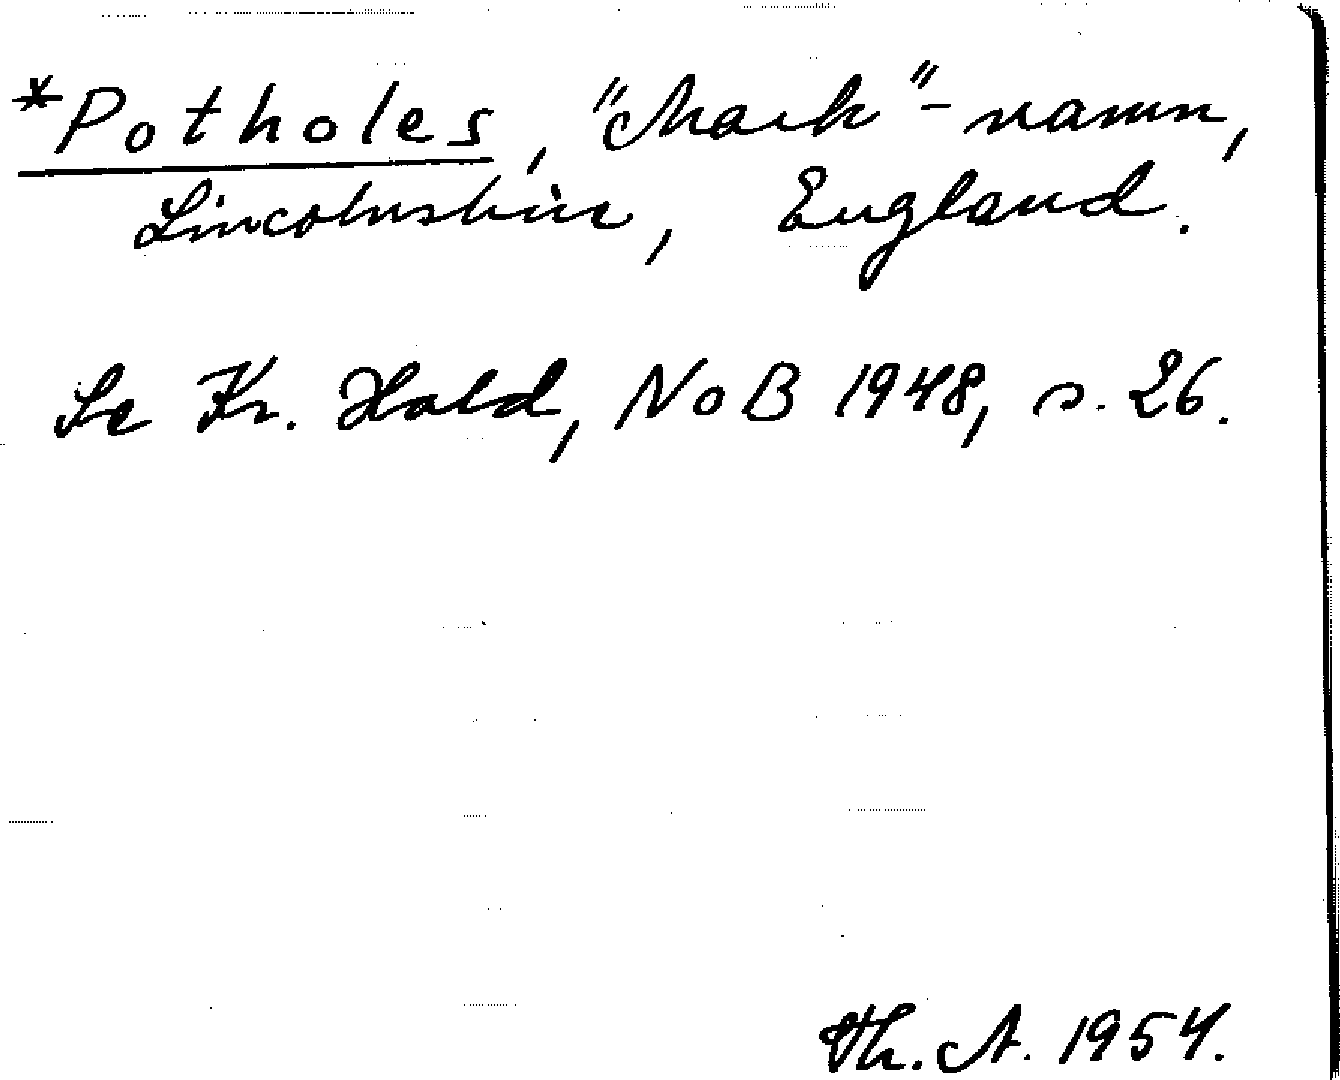 *Potholes, "Mark"-namn,
Lincolnshire, England.
Se Kr. Hald, NoB 1948, s. 26.
Th. A. 1954.